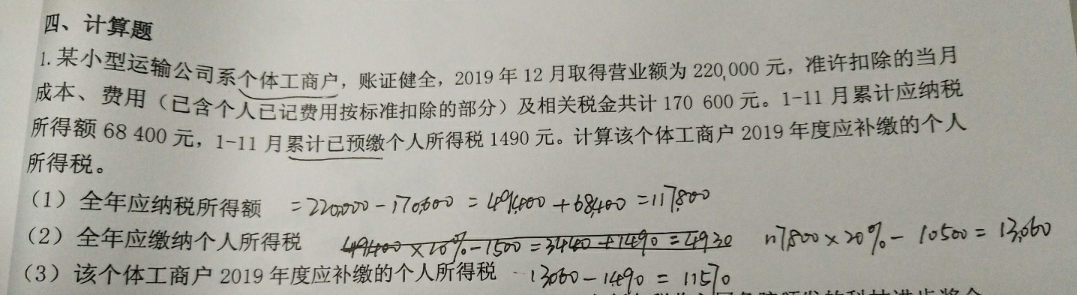 四、计算题
1.某小型运输公司系个体工商户，账证健全，2019 年 12 月取得营业额为 220,000 元，准许扣除的当月
成本、费用（已含个人已记费用按标准扣除的部分）及相关税金共计 170 600 元。1-11 月累计应纳税
所得额 68 400 元，1-11 月累计已预缴个人所得税 1490 元。计算该个体工商户 2019 年度应补缴的个人
所得税。
（1）全年应纳税所得额 =220000-170600=49400+68400=117800
（2）全年应缴纳个人所得税 49400×10%-1500=3440+1490=4930 117800×20%-10500=13060
（3）该个体工商户 2019 年度应补缴的个人所得税 13060-1490=11570